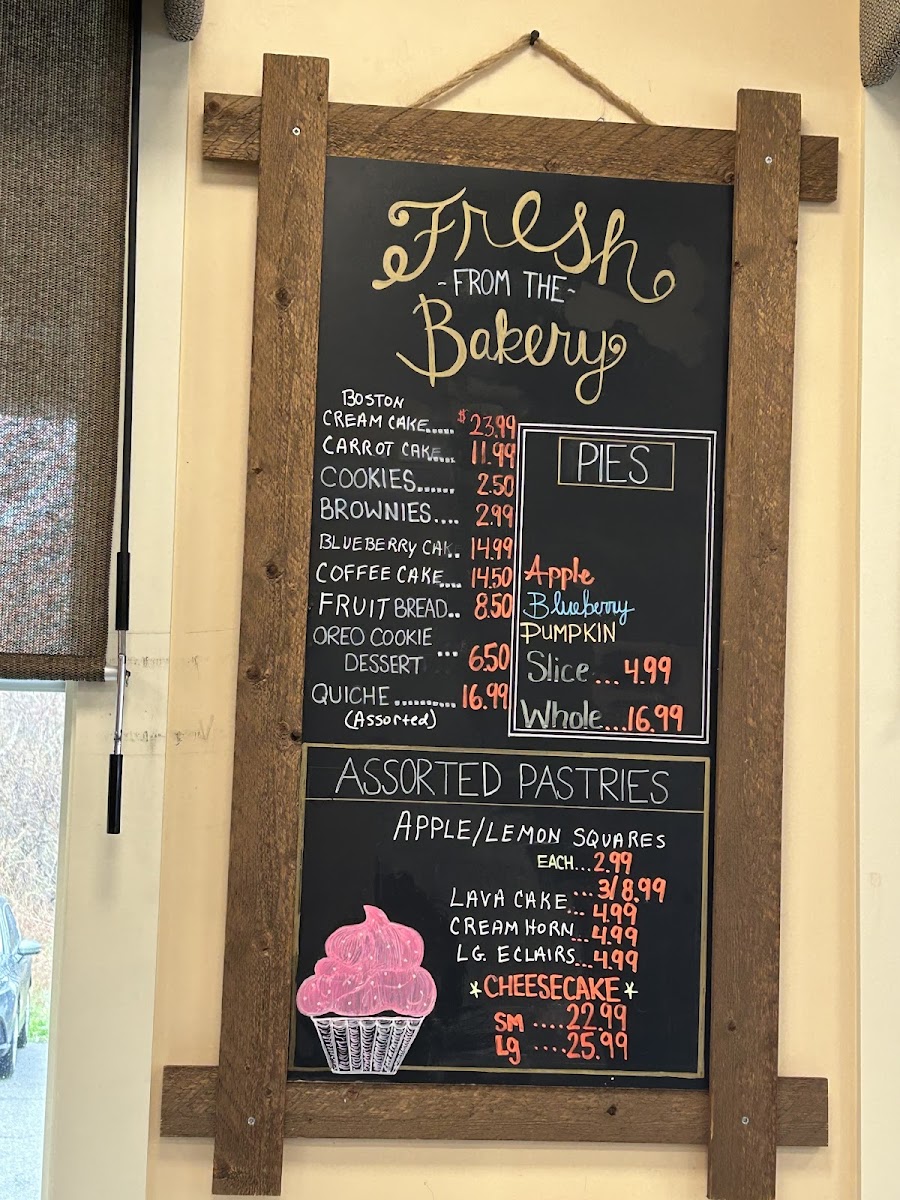 Fresh
-FROM THE-
Bakery
BOSTON
CREAM CAKE..... $23.99
CARROT CAKE.... 11.99
COOKIES...... 2.50
BROWNIES.... 2.99
BLUEBERRY CAK.. 14.99
COFFEE CAKE.... 14.50
FRUIT BREAD.. 8.50
OREO COOKIE
DESSERT ... 6.50
QUICHE .......... 16.99
(Assorted)
PIES
Apple
Blueberry
PUMPKIN
Slice... 4.99
Whole...16.99
ASSORTED PASTRIES
APPLE/LEMON SQUARES
EACH...2.99
...3/8.99
LAVA CAKE... 4.99
CREAM HORN...4.99
LG. ECLAIRS...4.99
*CHEESECAKE*
SM ....22.99
Lg ....25.99